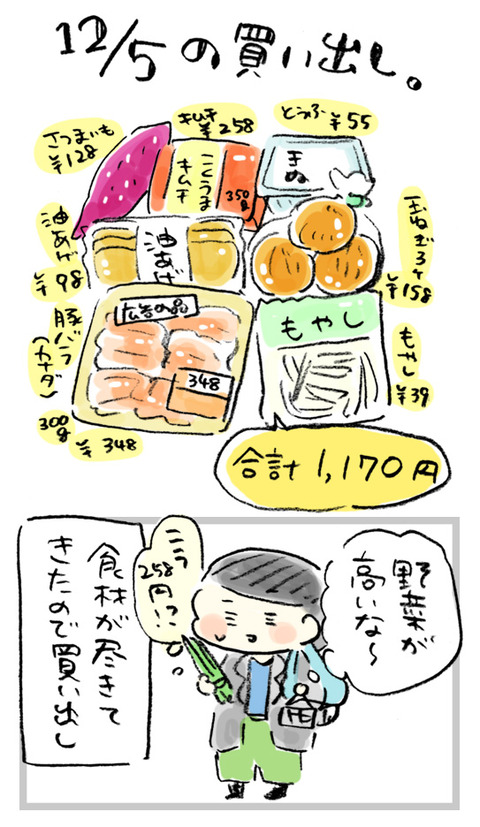 12/5の買い出し。
キムチ
¥258
とうふ¥55
さつまいも
¥128
こくうま
キムチ
350g
きぬ
油あげ
¥98
油あげ
玉ねぎ3ケ
¥158
豚バラ
(カナダ)
300g
¥348
広告の品
348
もやし
もやし
¥39
合計1,170円
野菜が
高いな〜
こう
258
円!?
食材が尽きて
きたので買い出し